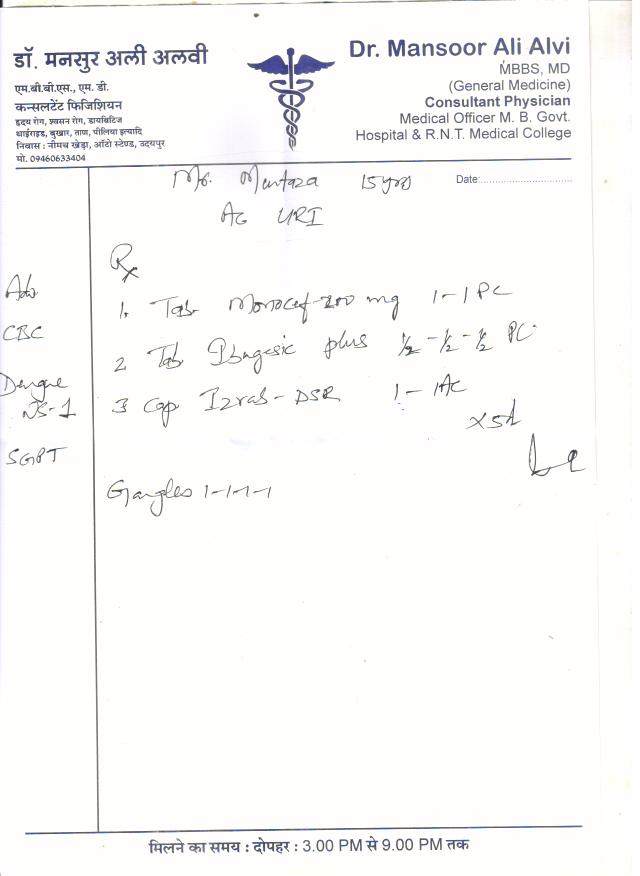 डॉ. मनसुर अली अलवी
एम.बी.बी.एस., एम. डी.
कन्सलटेंट फिजिशियन
हृदय रोग, श्वसन रोग, डायबिटिज
थाईराइड, बुखार, ताण, पीलिया इत्यादि
निवास : नीमच खेड़ा, ऑटो स्टेण्ड, उदयपुर
मो. 09460633404
Dr. Mansoor Ali Alvi
MBBS, MD
(General Medicine)
Consultant Physician
Medical Officer M. B. Govt.
Hospital & R.N.T. Medical College
Mr. Murtaza 15 yrs
Date:
Ac URI
Rx
Adv
CBC
Dengue
NS-1
SGPT
1. Tab Monocef-200 mg 1-1 PC
2 Tab Ibugesic plus ½-½-½ PC
3 Cap Izras-DSR 1-1 AC
x5d
Gargles 1-1-1-1
मिलने का समय : दोपहर : 3.00 PM से 9.00 PM तक